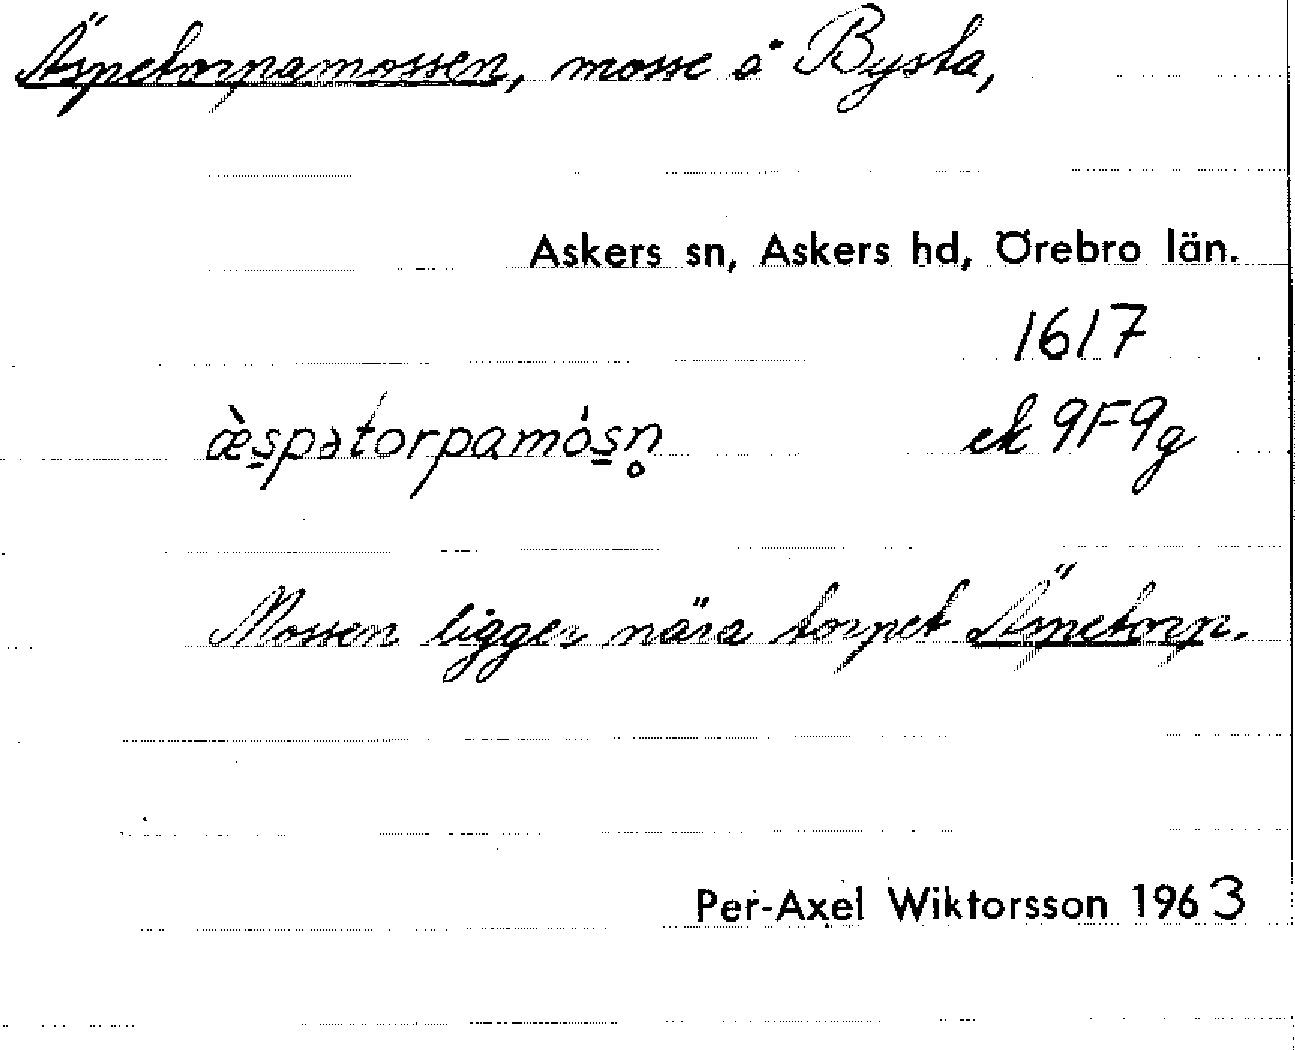 Äspetorpamossen, mosse å Bysta,
Askers sn, Askers hd, Örebro län.
1617
æ̀s̠pətorpamós̠n̥ ek 9F9g
Mossen ligger nära torpet Äspetorp.
Per-Axel Wiktorsson 1963